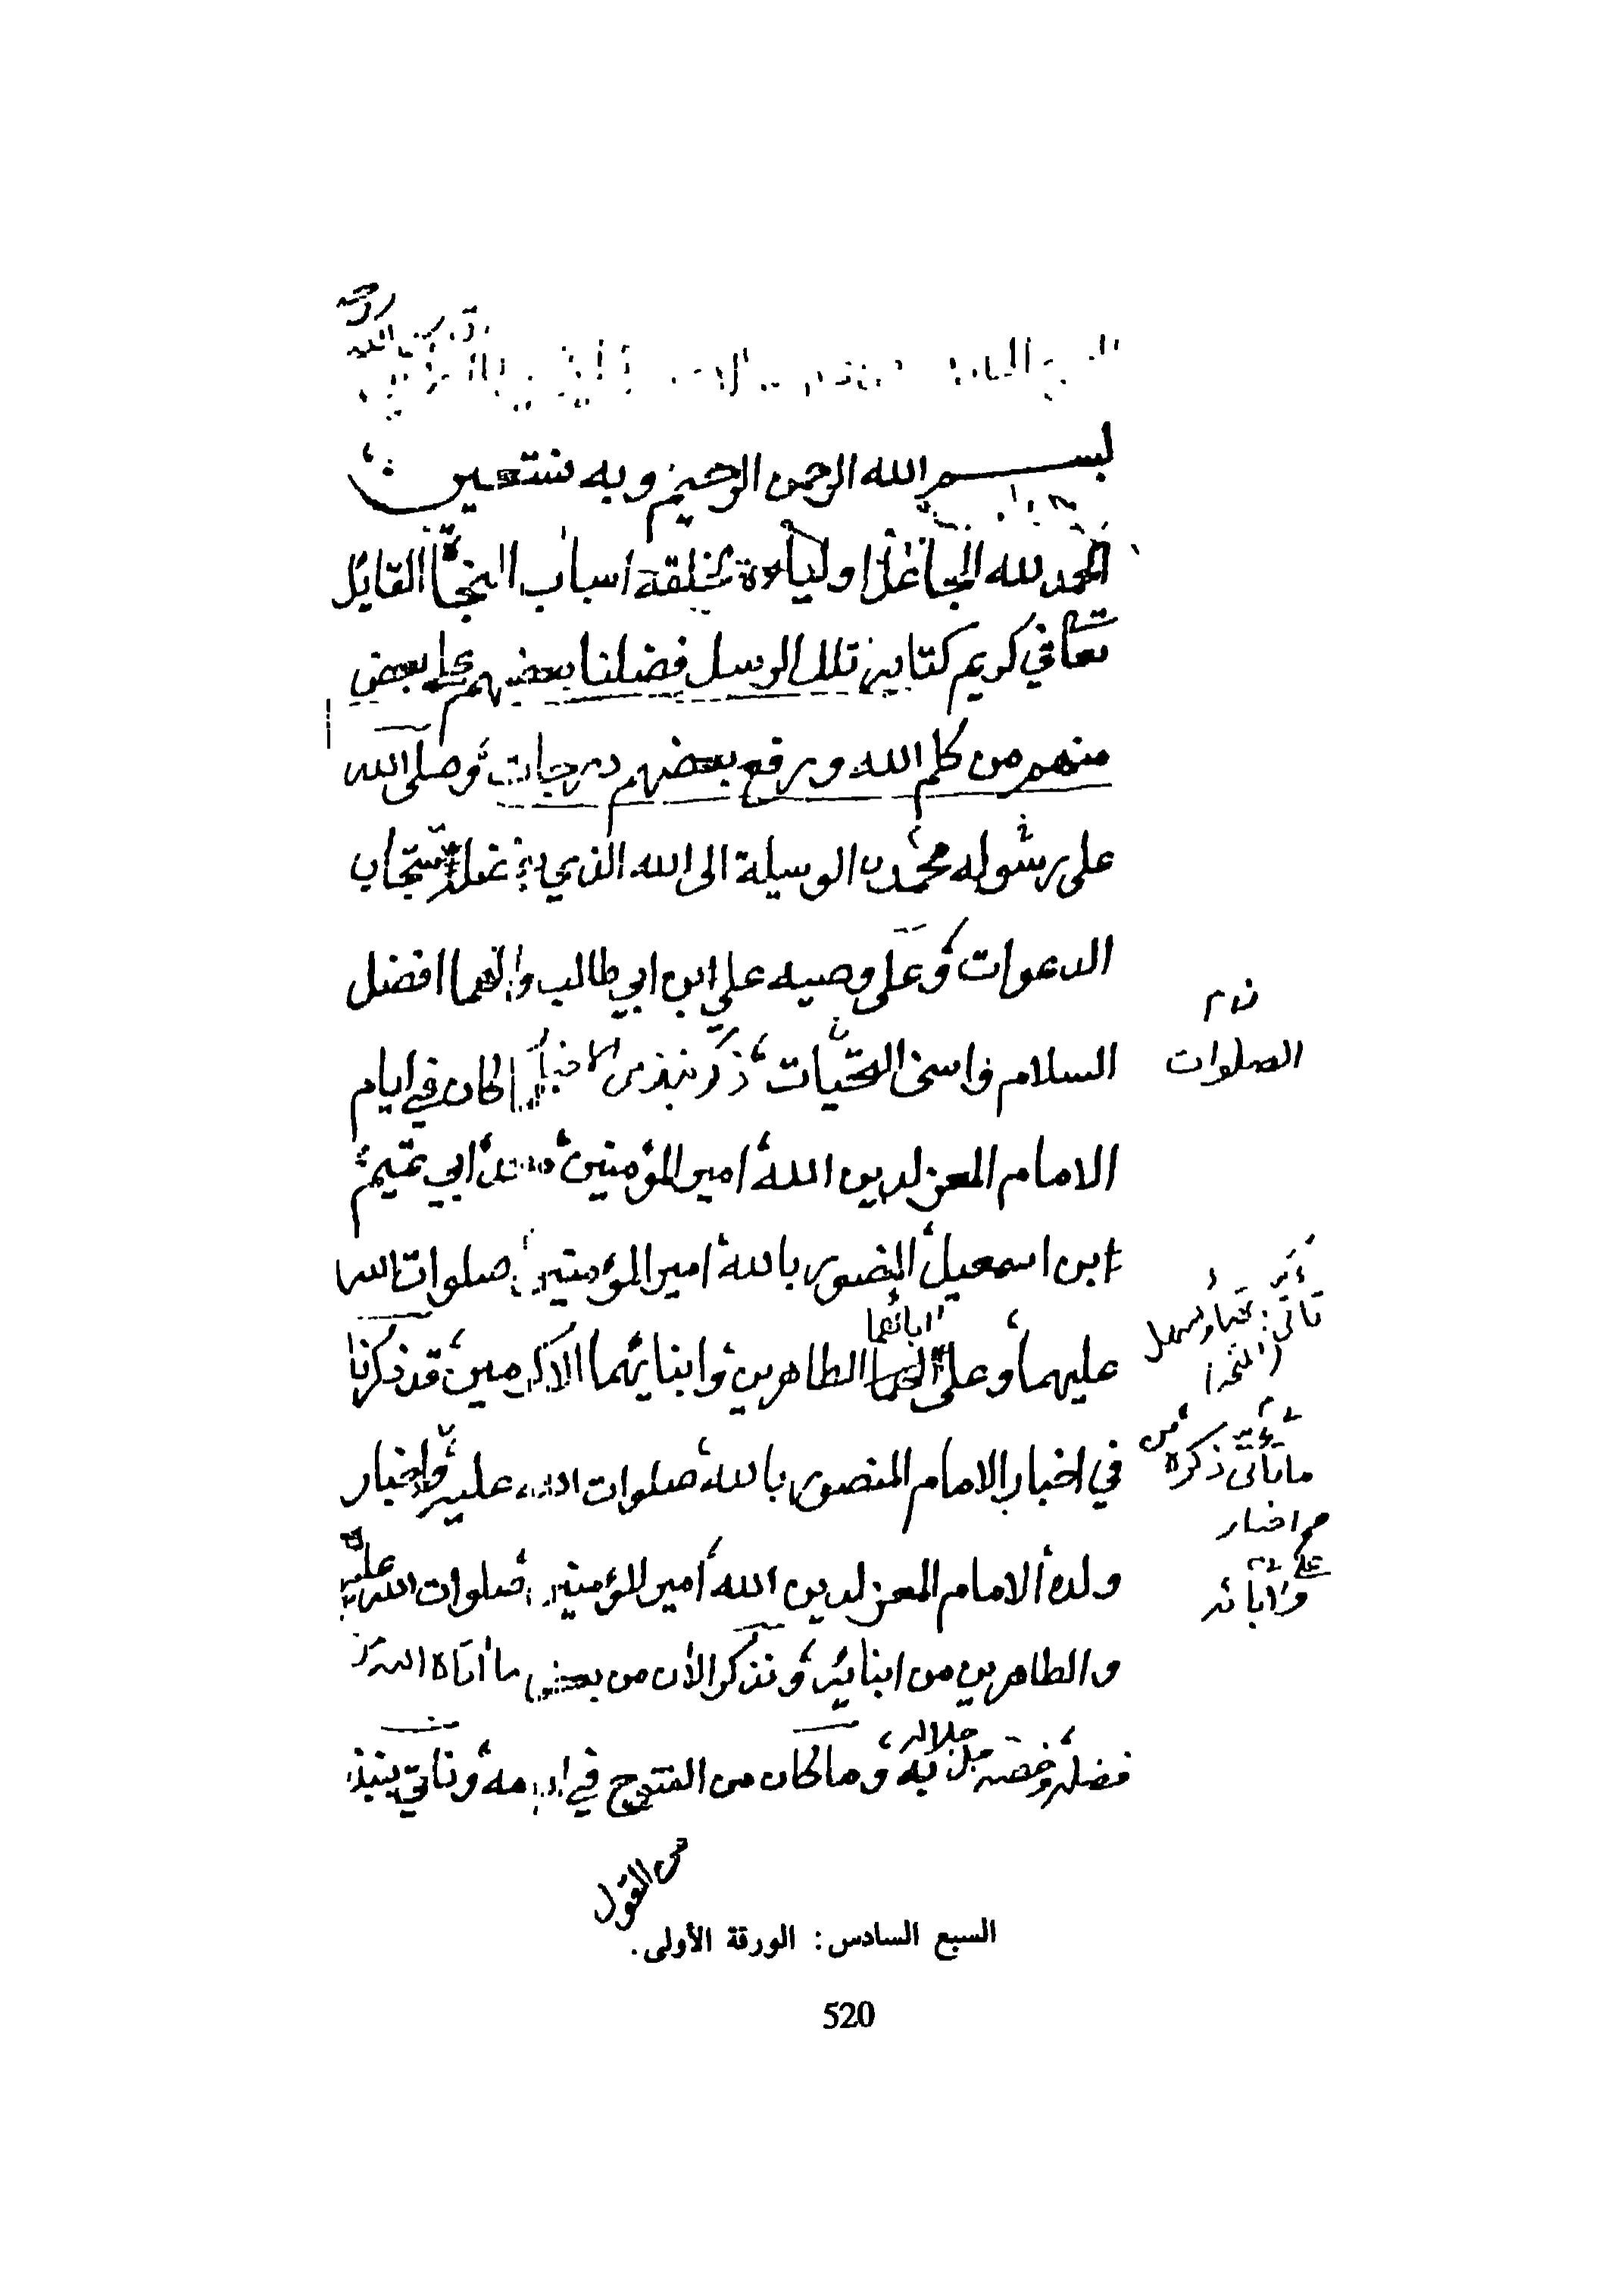 بسم الله الرحمن الرحيم وبه نستعين
الحمد لله الجاعل اولياءه لخلقه اسباب النجاة القايل
تعالى في كريم كتابه تلك الرسل فضلنا بعضهم على بعض
منهم من كلم الله ورفع بعضهم درجات وصلى الله
على رسوله محمد الوسيلة الى الله الذي تستجاب
الدعوات وعلى وصيه علي ابن ابي طالب وآلهما افضل
السلام واسنى التحيات ذكر نبذ من الاخبار لما كان في ايام
الصلوات
الامام المعز لدين الله امير المؤمنين ابي تميم
ابن اسمعيل المنصور بالله امير المؤمنين صلوات الله
عليهما وعلى ابائهما الطاهرين وابنائهما الاكرمين قد ذكرنا
في اخبار الامام المنصور بالله صلوات الله عليه واخبار
ما يأتى ذكره من
اخبار
ولده الامام المعز لدين الله امير المؤمنين صلوات الله عليه
وآبائه
والطاهرين من ابنائه ونذكر الآن من بعض ما اتاه الله من
فضله وخصه جل جلاله به وما كان من الفتوح في ايامه ونأتي بنبذ
من القول
السبع السادس: الورقة الأولى.
520